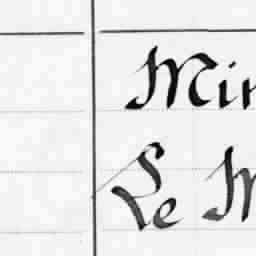 Min
Le M